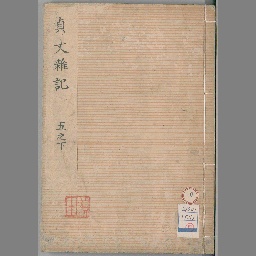 貞丈雜記
五之下